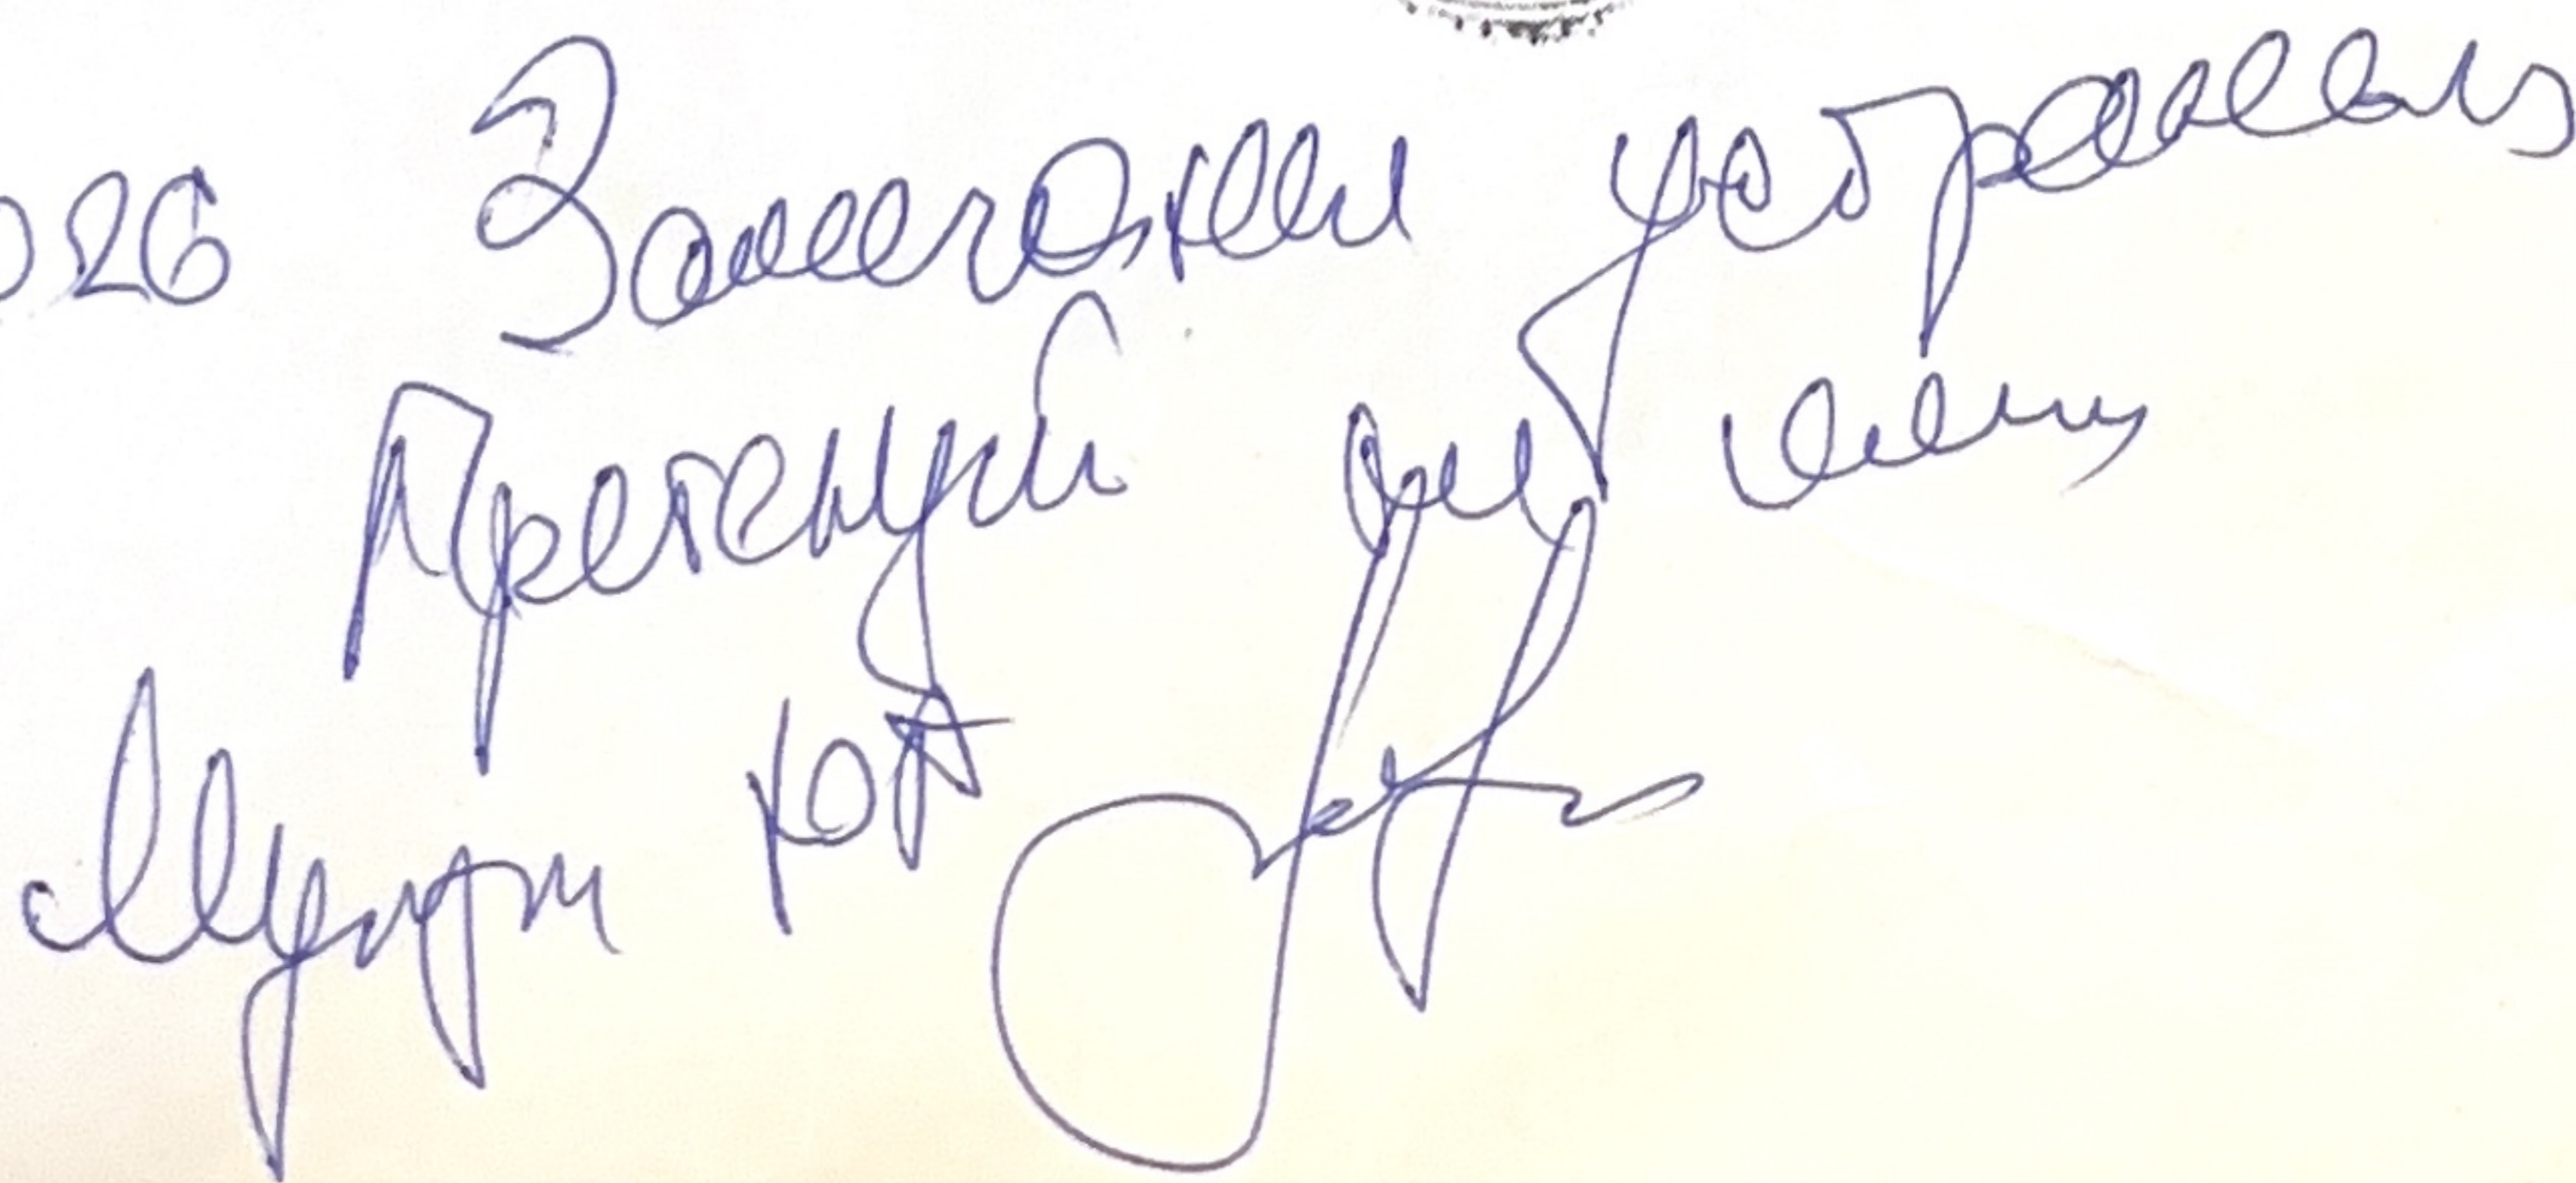 026 Замечания устранены
Претензий не имею
Ю А